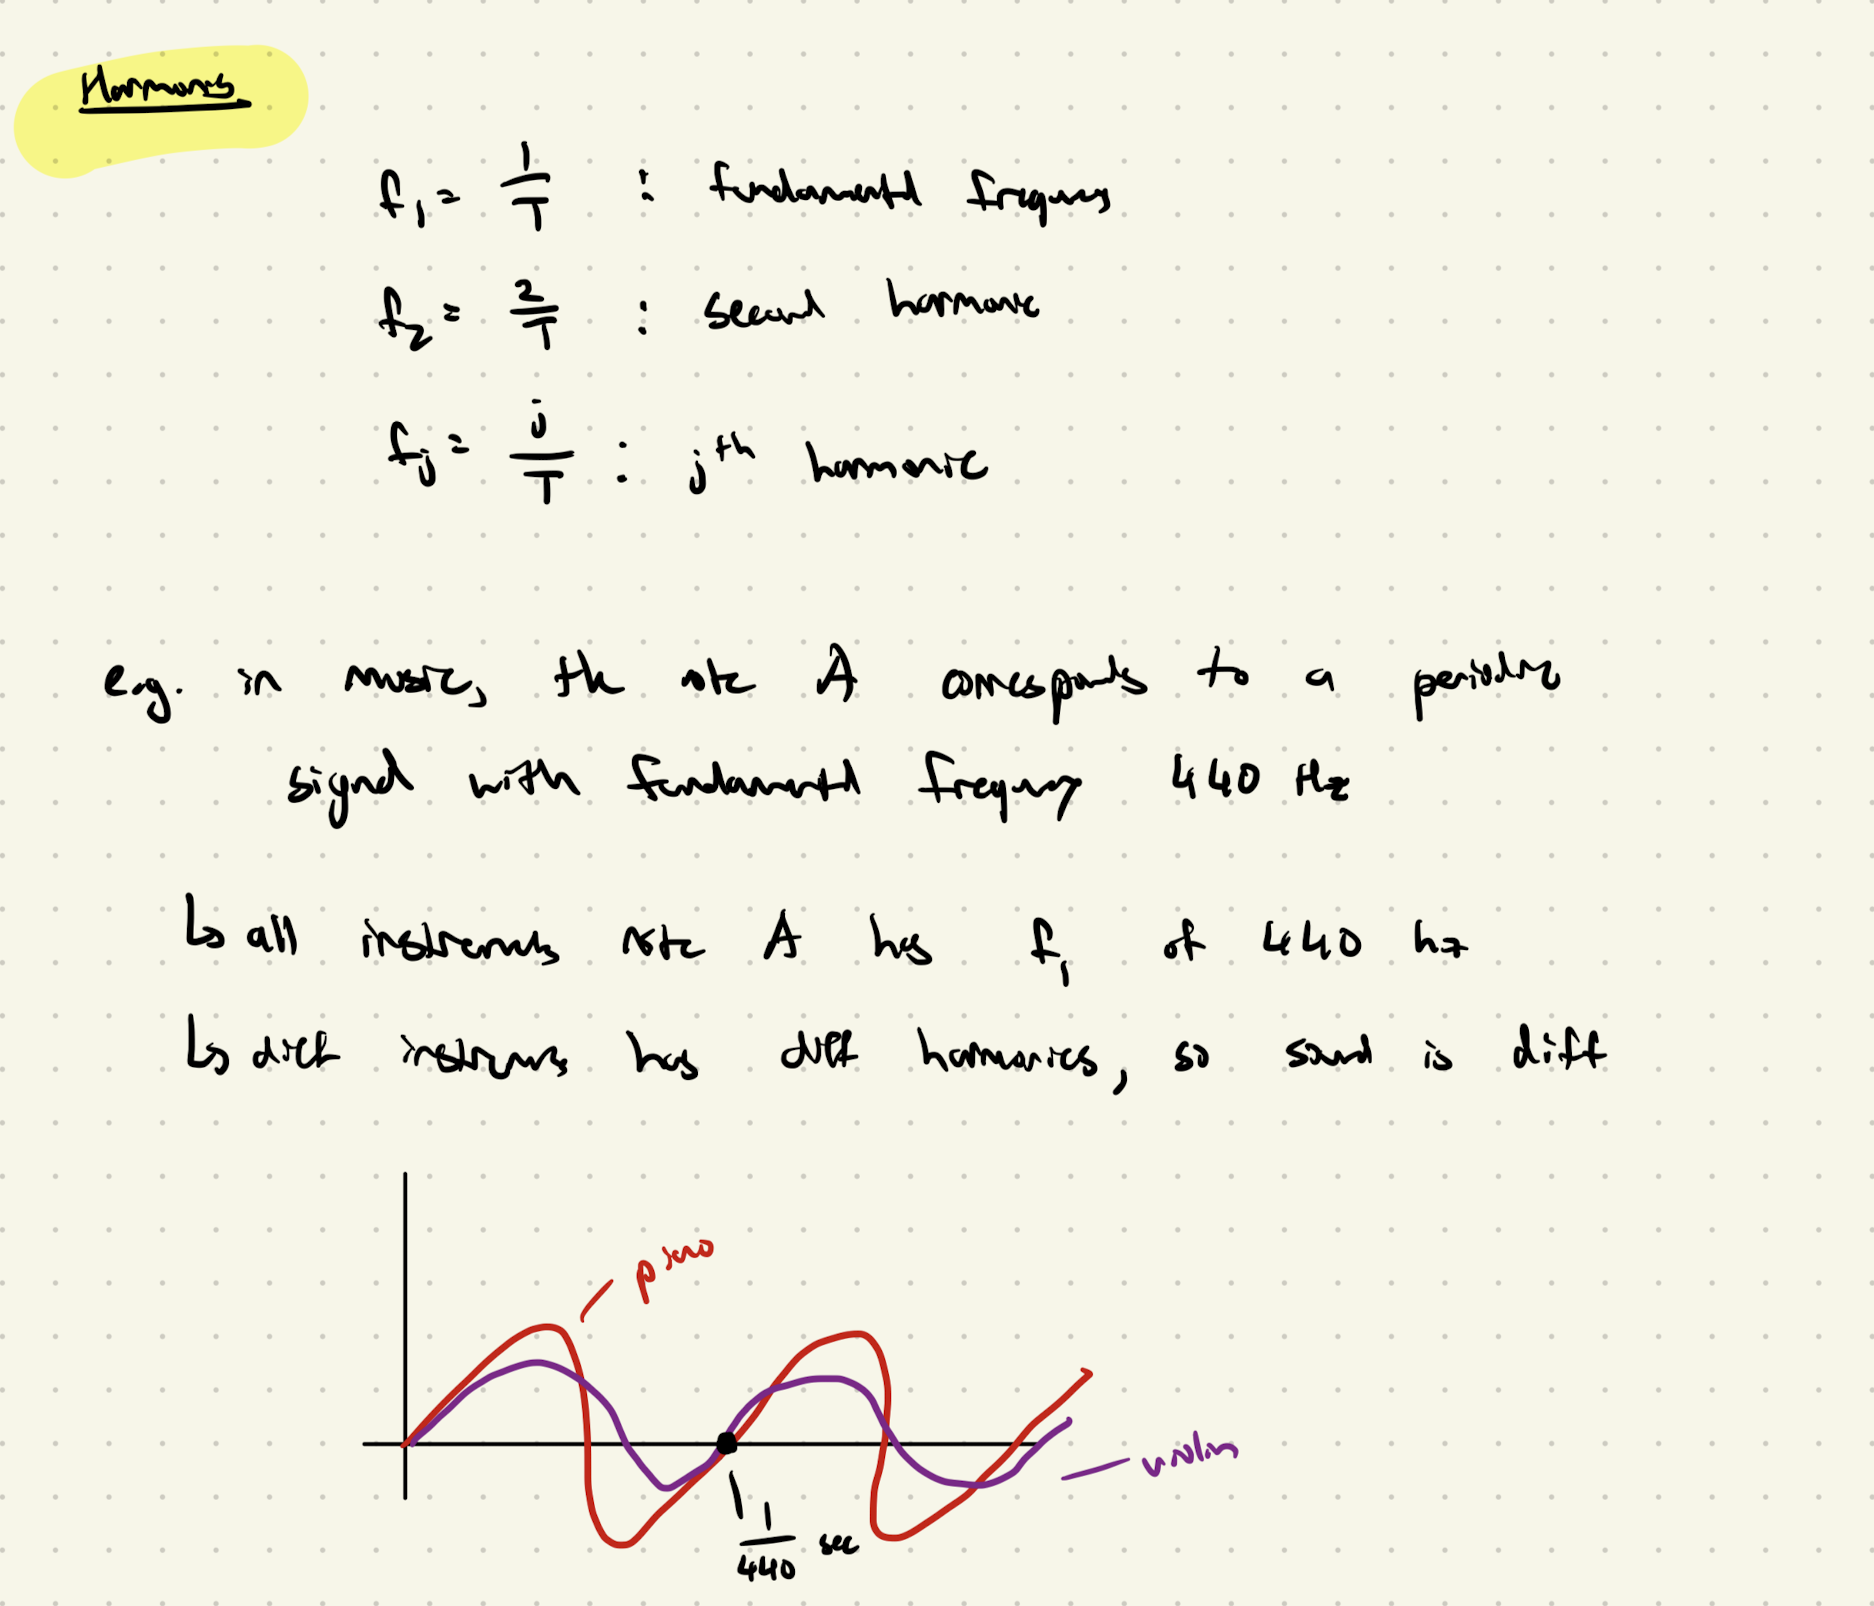 Harmonics
f₁ = 1/T : fundamental frequency
f₂ = 2/T : second harmonic
fⱼ = j/T : jth harmonic
e.g. in music, the note A corresponds to a periodic
signal with fundamental frequency 440 Hz
↳ all instruments note A has f₁ of 440 hz
↳ diff instruments has diff harmonics, so sound is diff
piano
violin
1/440 sec